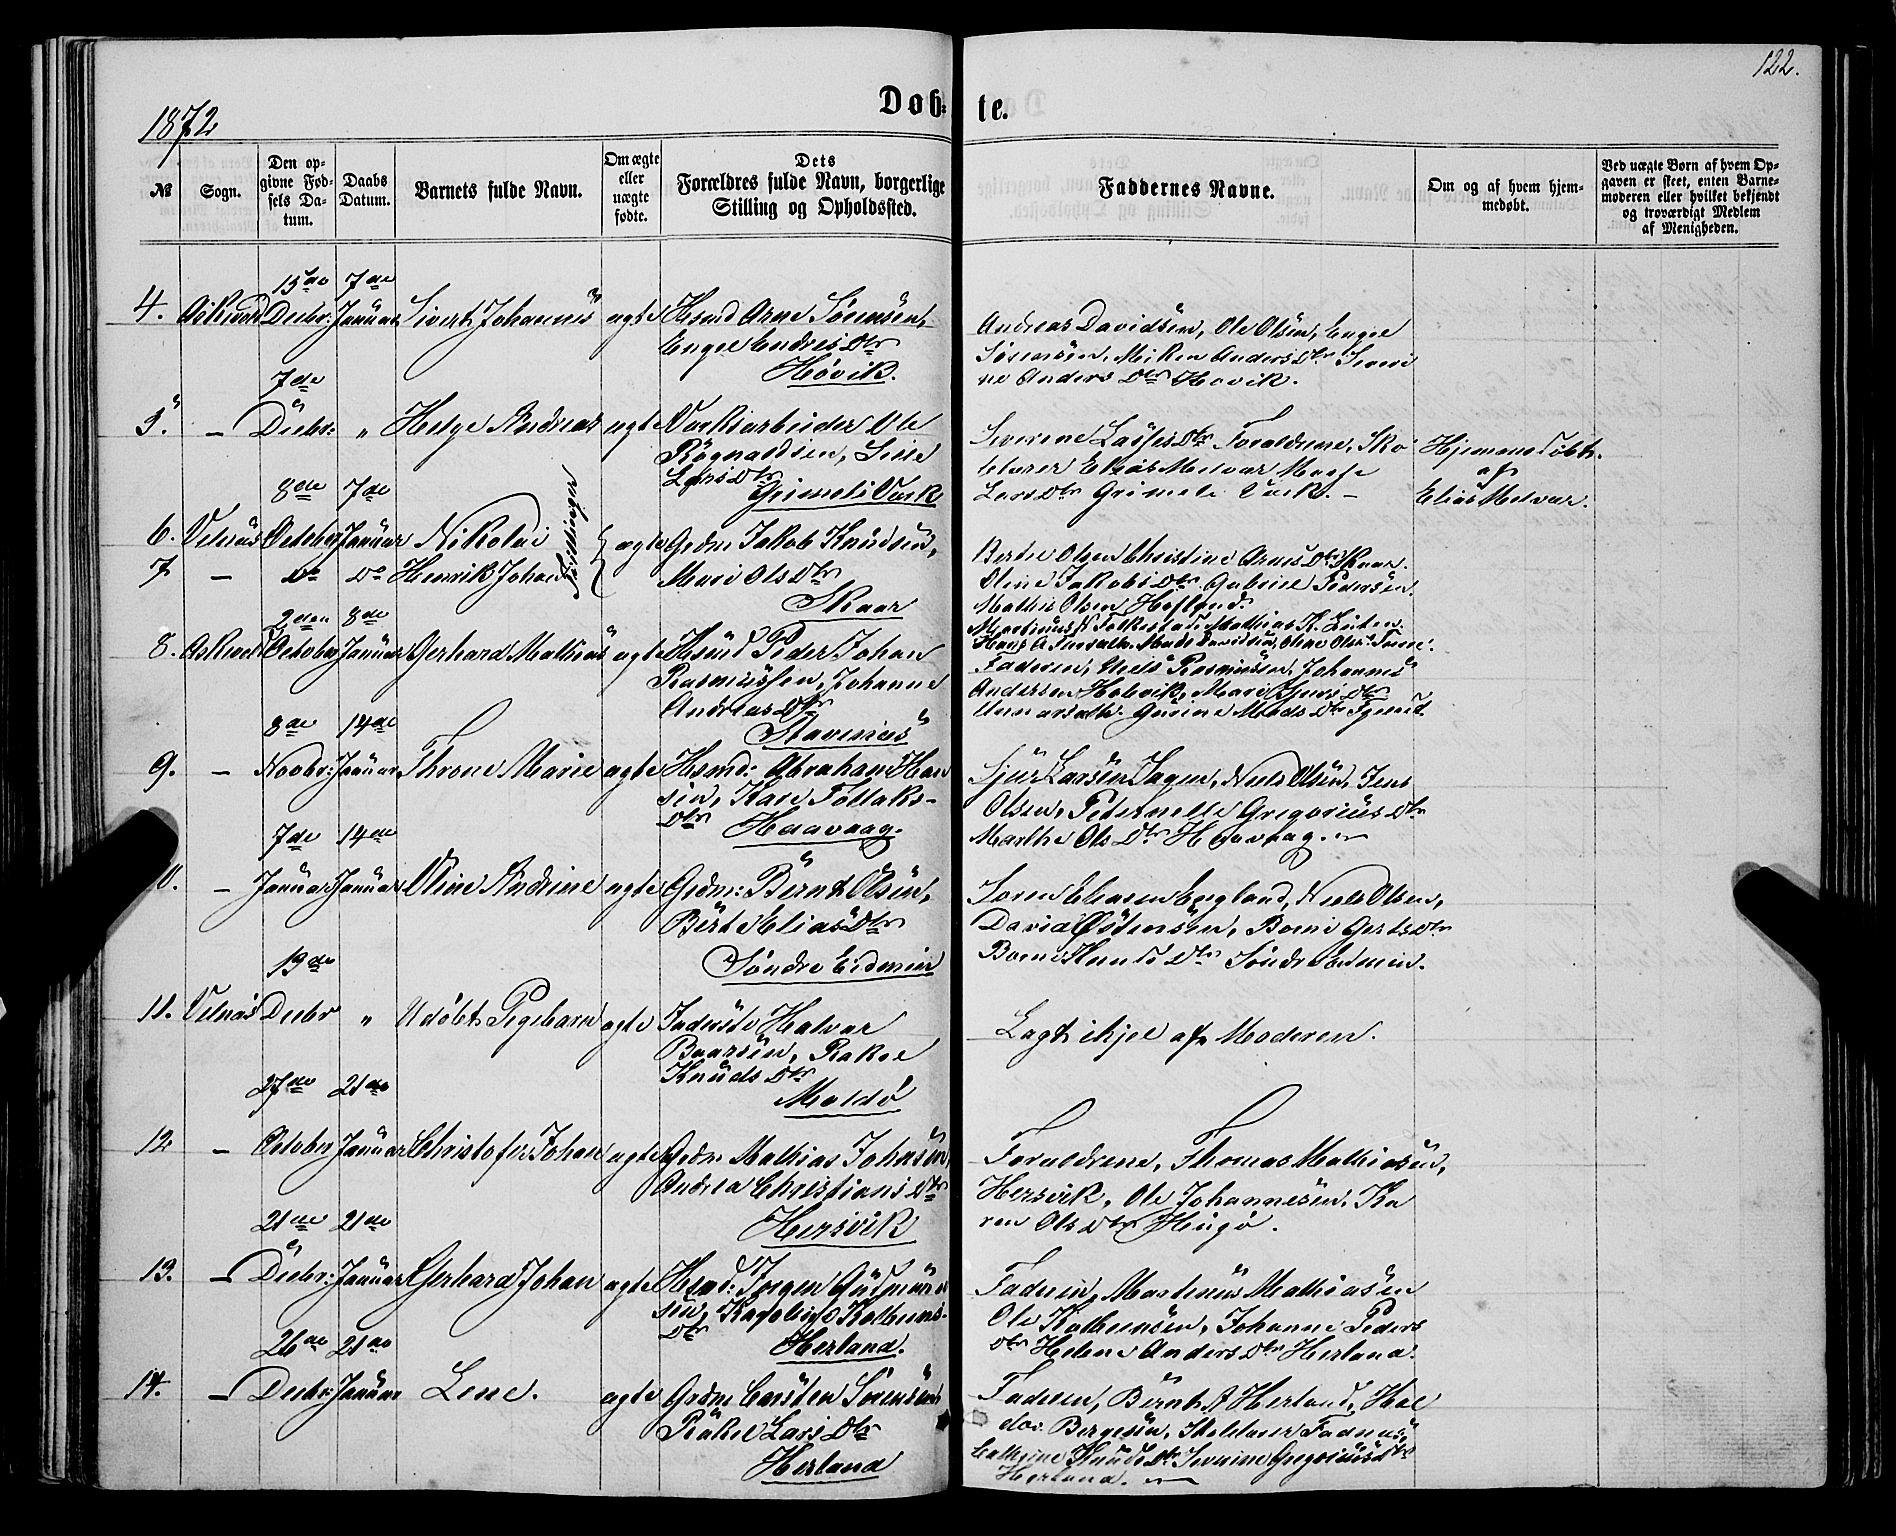 122.
1872
Døb-te.
№
Sogn.
Den op-
givne Fød-
sels Da-
tum.
Daabs
Datum.
Barnets fulde Navn.
Om ægte
eller
uægte
fødte.
Dets
Forældres fulde Navn, borgerlige
Stilling og Opholdssted.
Faddernes Navne.
Om og af hvem hjem-
medøbt.
Ved uægte Børn af hvem Op-
gaven er skeet, enten Barne-
moderen eller hvilket bekjendt
og troværdigt Medlem
af Menigheden.
4. Askvold 15de Decbr: 7de Januar Sivert Johannes ægte Hsmd Arne Sørensen,
Engel Endres Dtr
Høvik.
Andreas Davidsen, Ole Olsen, Engel
Sørensen, Miken Anders Dtr Severi
ne Anders Dtr Høvik.
5. - 7de Decbr: " Helge Andreas ægte Værksarbeider Ole
Rognaldsen,
Lars Dtr
Grimeli Værk
Severine Lasses Dtr Forældrene, Sko
lelærer Elias Melvær
Lars Dtr Grimeli Værk. -
Hjemmedøbt.
af
Elias Melvær.
6. Vilnæs 8de October 7de Januar Nikolai
7 - do Do Henrik Johan
Tvillinger
ægte Grdm Jakob Knudsen,
Mari Ols Dtr
Skaar
Berte Olsen Christine Arnes Dtr Skaar
Oline Jakobs Dtr Gabriel Pedersen
Mathis Olsen Hofland.
8. Askvold 2den October 8de Januar Gerhard Mathias ægte Hsmd Peder Johan
Rasmussen, Johanne
Andreas Dtr
Stavenes
Faderen, Niels Rasmussen, Johannes
Andersen Holevik, Mari
Gurine Mads Dtr
9. - 8de Novbr: 14de Januar Throne Marie ægte Hsmd: Abraham Han
sen, Kari Tollaks-
Dtr Haavaag.
Sjur Larsen Nils Olsen, Jens
Olsen, Peternelle Gregorius Dtr
Marthe Ols Dtr Haavaag.
10. - 7de Januar 14de Januar Oline Andrine ægte Grdm: Bernt Olsen,
Berte Elias Dtr
Søndre Eidmin
Søren Nils Olsen,
David Østensen, Gerts Dtr
Knuds Dtr Søndr
11. Vilnæs 19de Decbr " Udøbt Pigebarn ægte Inderste Halvar
Baarsen, Rakel
Knuds Dtr
Moldø
Lagt ihjel af Moderen.
12 - 27de October 21de Januar Christofer Johan ægte Grdm Mathias Johnsen,
Andrea Christians Dtr
Hersvik
Forældrene, Thomas Mathiasen,
Hersvik, Ole Johannesen, Ka
ren Ols Dtr Hugø.
13. - 21de Decbr: 21de Januar Gerhard Johan ægte Hsmd: Jørgen Gudmund
sen, Ragnhild
Dtr Herland.
Faderen, Martinus Mathiasen
Ole Johanne Peders
Dtr Helene Anders Dtr Herland.
14. - 26de Decbr: 21de Januar Lene. ægte Grdm Carsten Sørensen
Rakel Lars Dtr
Herland
Faderen, Bernt A Herland, Hal
dor Børgesen, Skolelærer
Cathrine Knuds Dtr Severine Gregorius Dtr
Herland.